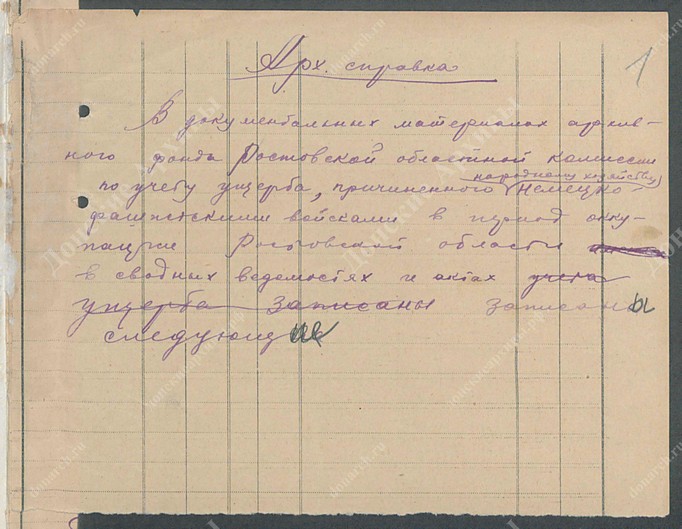 Арх. справка
1
В документальных материалах архив-
ного фонда Ростовской областной комиссии
народному хозяйству
по учету ущерба, причиненного немецко-
фашистскими войсками в период окку-
пации Ростовской области
в сводных ведомостях и актах учета
ущерба записаны записаны
следующие